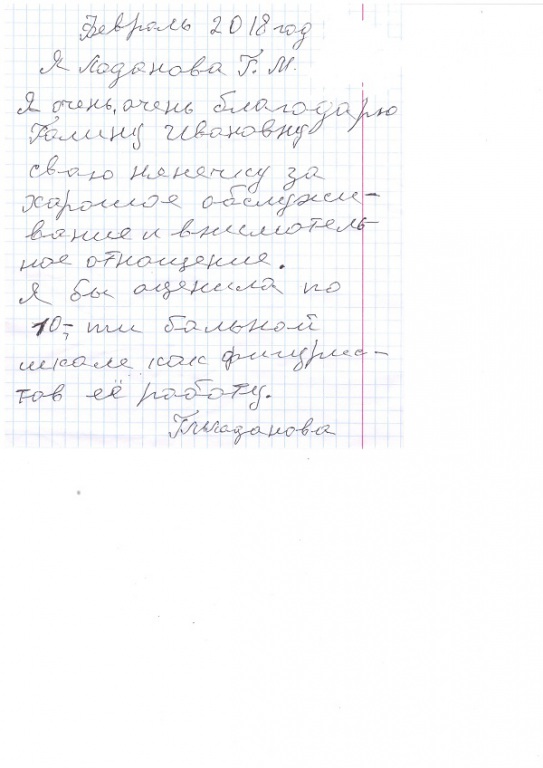 Февраль 2018 год
Я Ладанова Г. М.
Я очень, очень благодарю
Галину Ивановну
сваю нянечку за
харошое обслужи-
вание и внимотель-
ное отношение.
Я бы оценила по
10-ти бальной
шкале как фигурис-
тов её работу.
ГМЛаданова